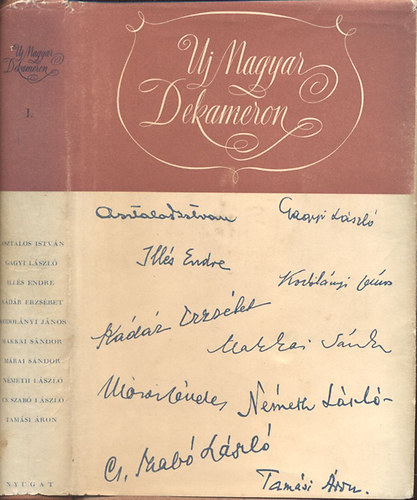 Uj Magyar
Dekameron
I.
ASZTALOS ISTVÁN
GAGYI LÁSZLÓ
ILLÉS ENDRE
KÁDÁR ERZSÉBET
KODOLÁNYI JÁNOS
MAKKAI SÁNDOR
MÁRAI SÁNDOR
NÉMETH LÁSZLÓ
CS SZABÓ LÁSZLÓ
TAMÁSI ÁRON
NYUGAT
Uj Magyar
Dekameron
Asztalos István
Gagyi László
Illés Endre
Kodolányi János
Kádár Erzsébet
Makkai Sándor
Márai Sándor
Németh László
Cs. Szabó László
Tamási Áron.